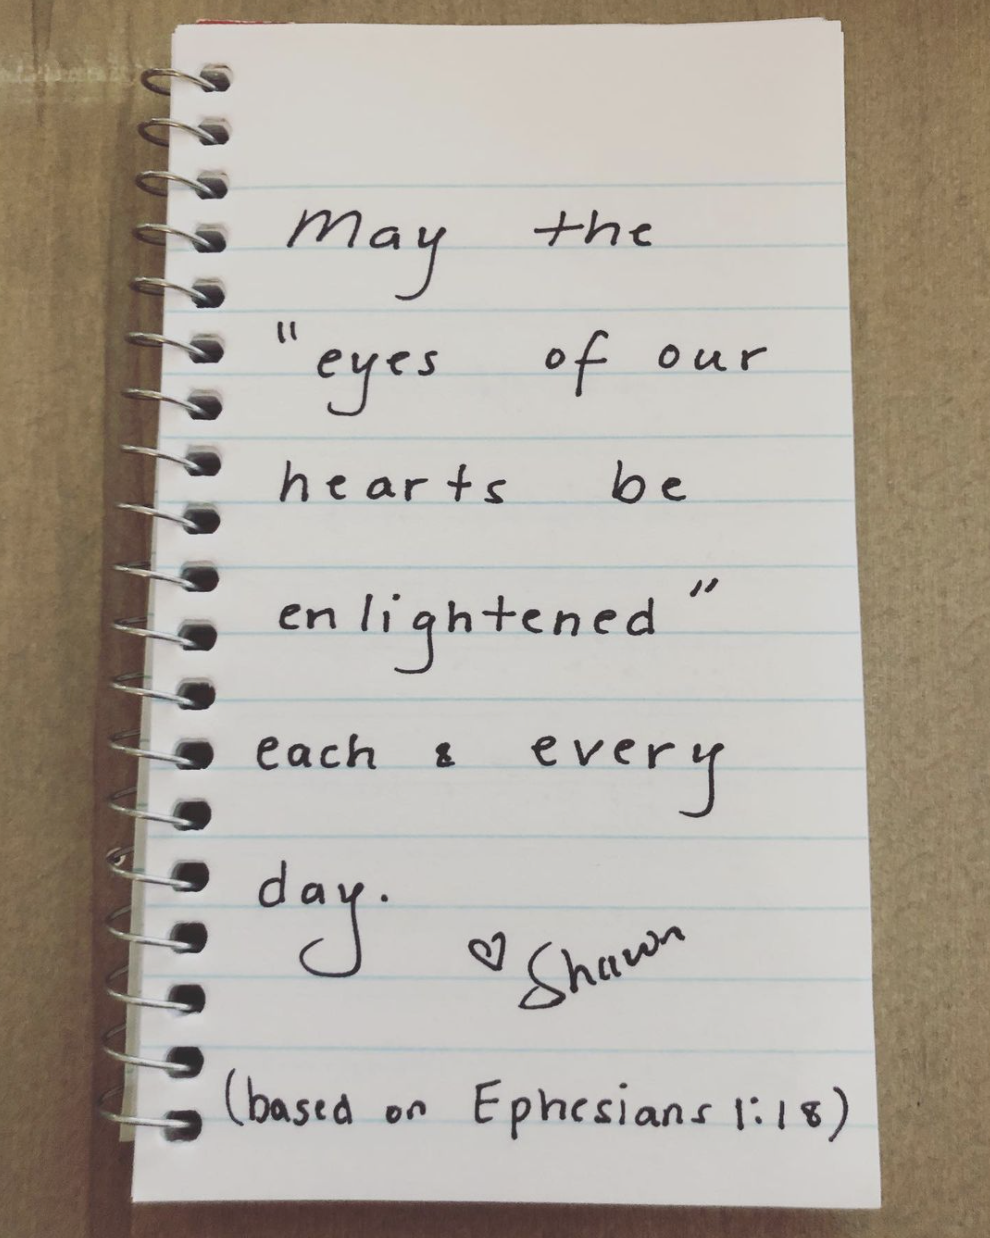 May the
"eyes of our
hearts be
enlightened"
each & every
day.
♡ Shawn
(based on Ephesians 1:18)